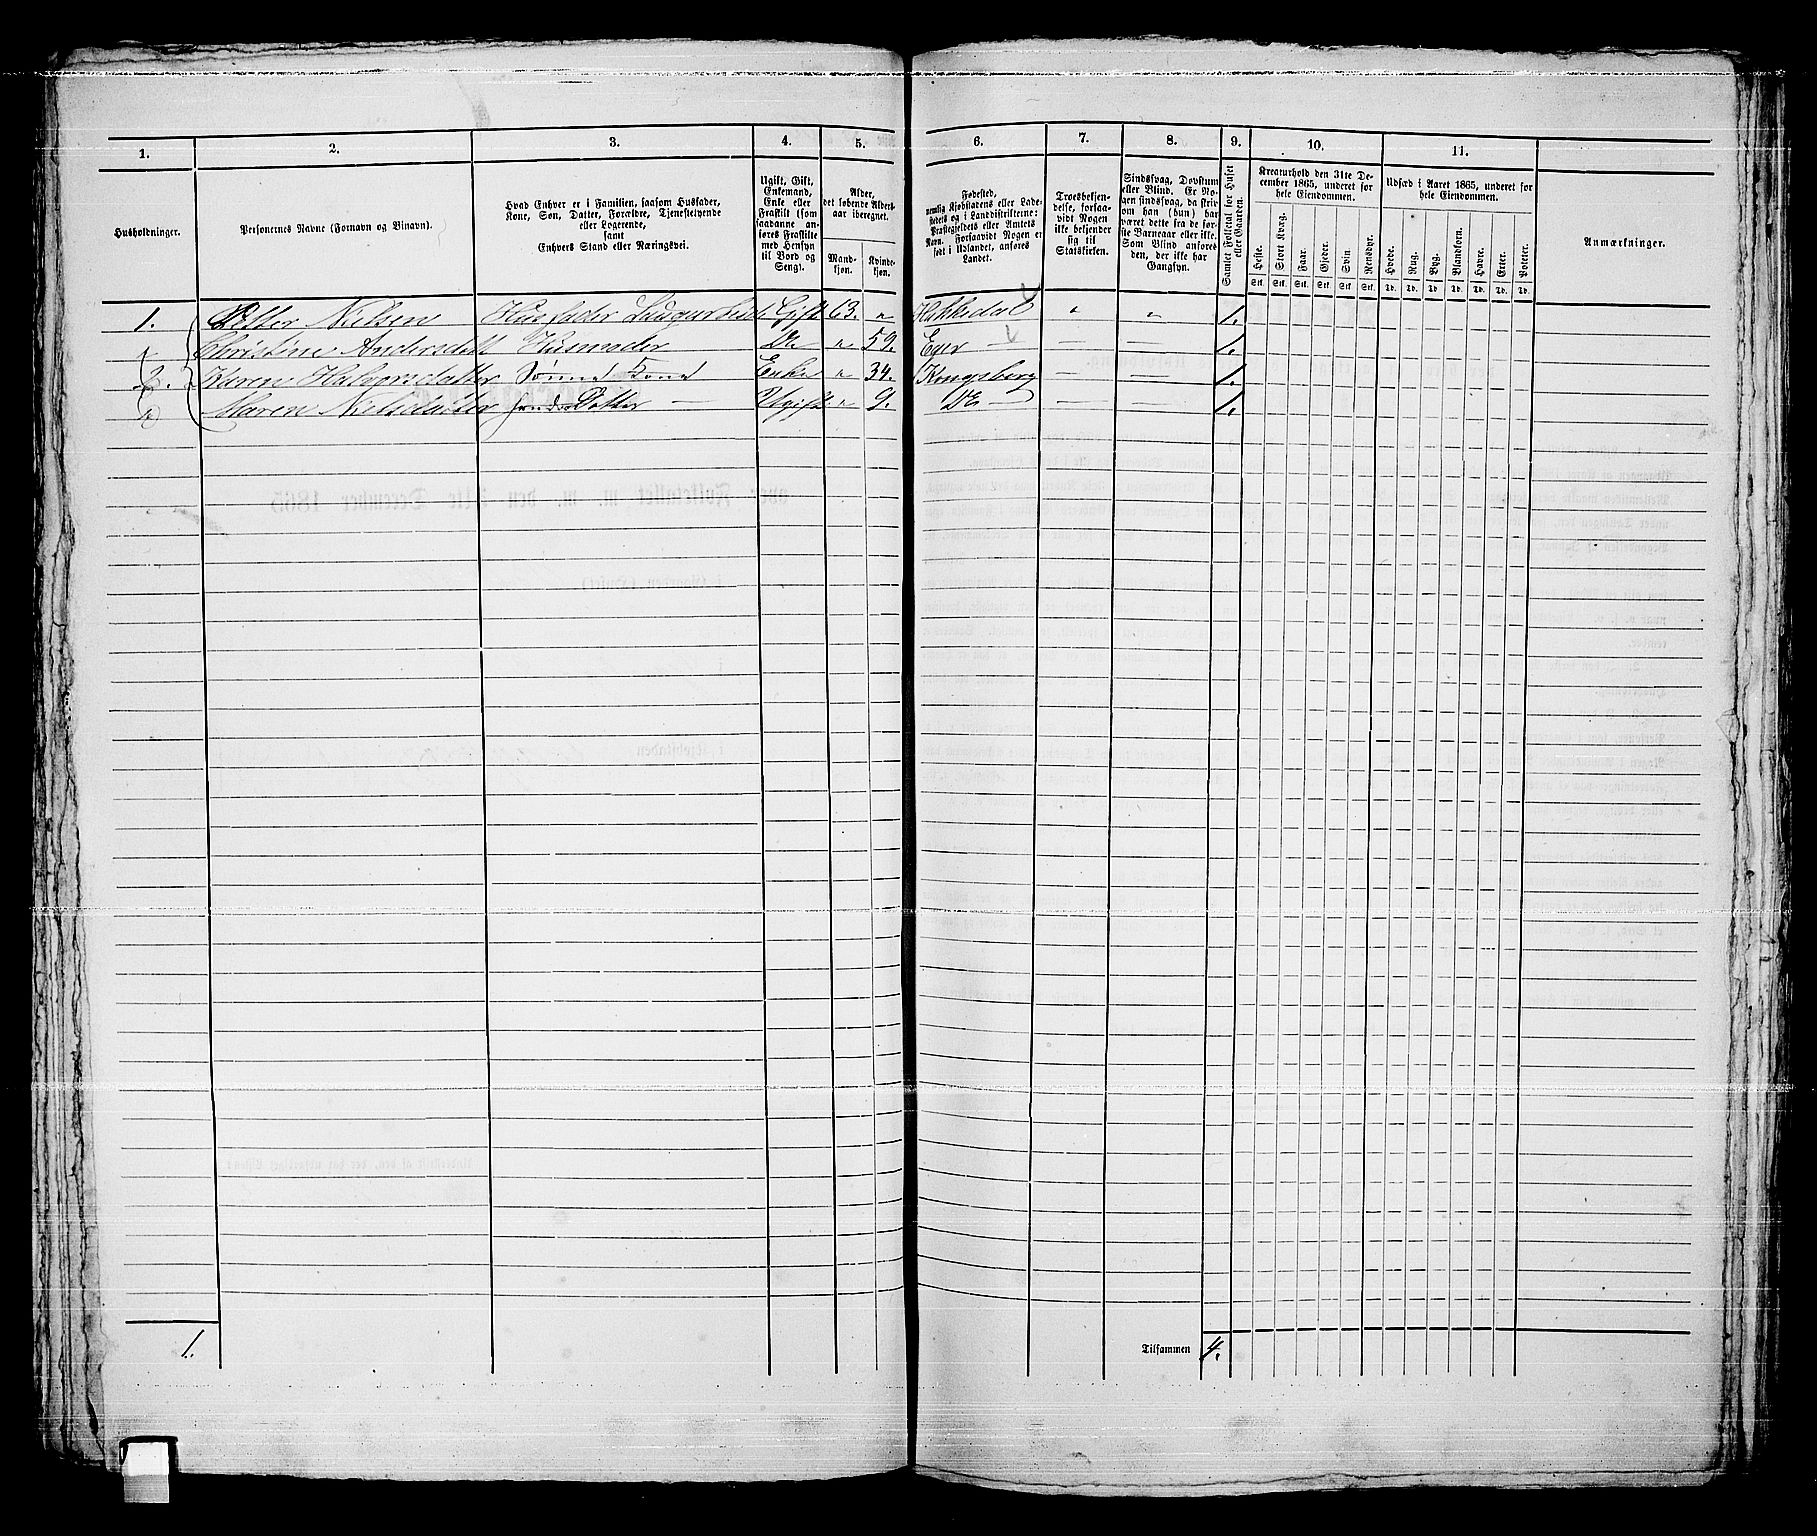 1.
2.
3.
4.
5.
6.
7.
8.
9.
10.
11.
Husholdninger.
Personernes Navne (Fornavn og Binavn).
Hvad Enhver er i Familien, saasom Husfader,
Kone, Søn, Datter, Forældre, Tjenestetyende
eller Logerende,
samt
Enhvers Stand eller Næringsvei.
Ugift, Gift,
Enkemand,
Enke eller
Fraskilt (som
saadanne an-
føres Fraskilte
med Hensyn
til Bord og
Seng).
Alder,
det løbende Alders-
aar iberegnet.
Mand-
kjøn.
Kvinde-
kjøn.
Fødested,
nemlig Kjøbstadens eller Lade-
stedets og i Landdistrikterne:
Præstegjeldets eller Amtets
Navn. Forsaavidt Nogen er
født i Udlandet, anføres
Landet.
Troesbekjen-
delse, forsaa-
vidt Nogen
ikke bekjender
sig til
Statskirken.
Sindssvag, Døvstum
eller Blind. Er No-
gen sindssvag, da skriv
om han (hun) har
været dette fra de før-
ste Barneaar eller ikke.
Som Blind anføres
den, der ikke har
Gangsyn.
Samlet Folketal for Huset
eller Gaarden.
Kreaturhold den 31te De-
cember 1865, underet for
hele Eiendommen.
Heste.
Stort Kvæg.
Faar.
Gjeder.
Svin
Rensdyr.
Stk. Stk. Stk. Stk. Stk. Stk.
Udsæd i Aaret 1865, underet for
hele Eiendommen.
Hvede.
Rug.
Byg.
Blandkorn.
Havre.
Erter.
Poteter.
Td. Td. Td. Td. Td. Td. Td.
Anmærkninger.
1. Petter Nielsen Husfader Gift 63. " Hakkedal " " 1.
Christine Andersdatt Husmoder Do " 59. Eger — — 1.
2. Karen Halvorsdatter Sønne Kone Enke " 34. Kongsberg — — 1.
Maren Nielsdatter Datter — Ugift " 9. Do — — 1.
1.
Tilsammen 4.